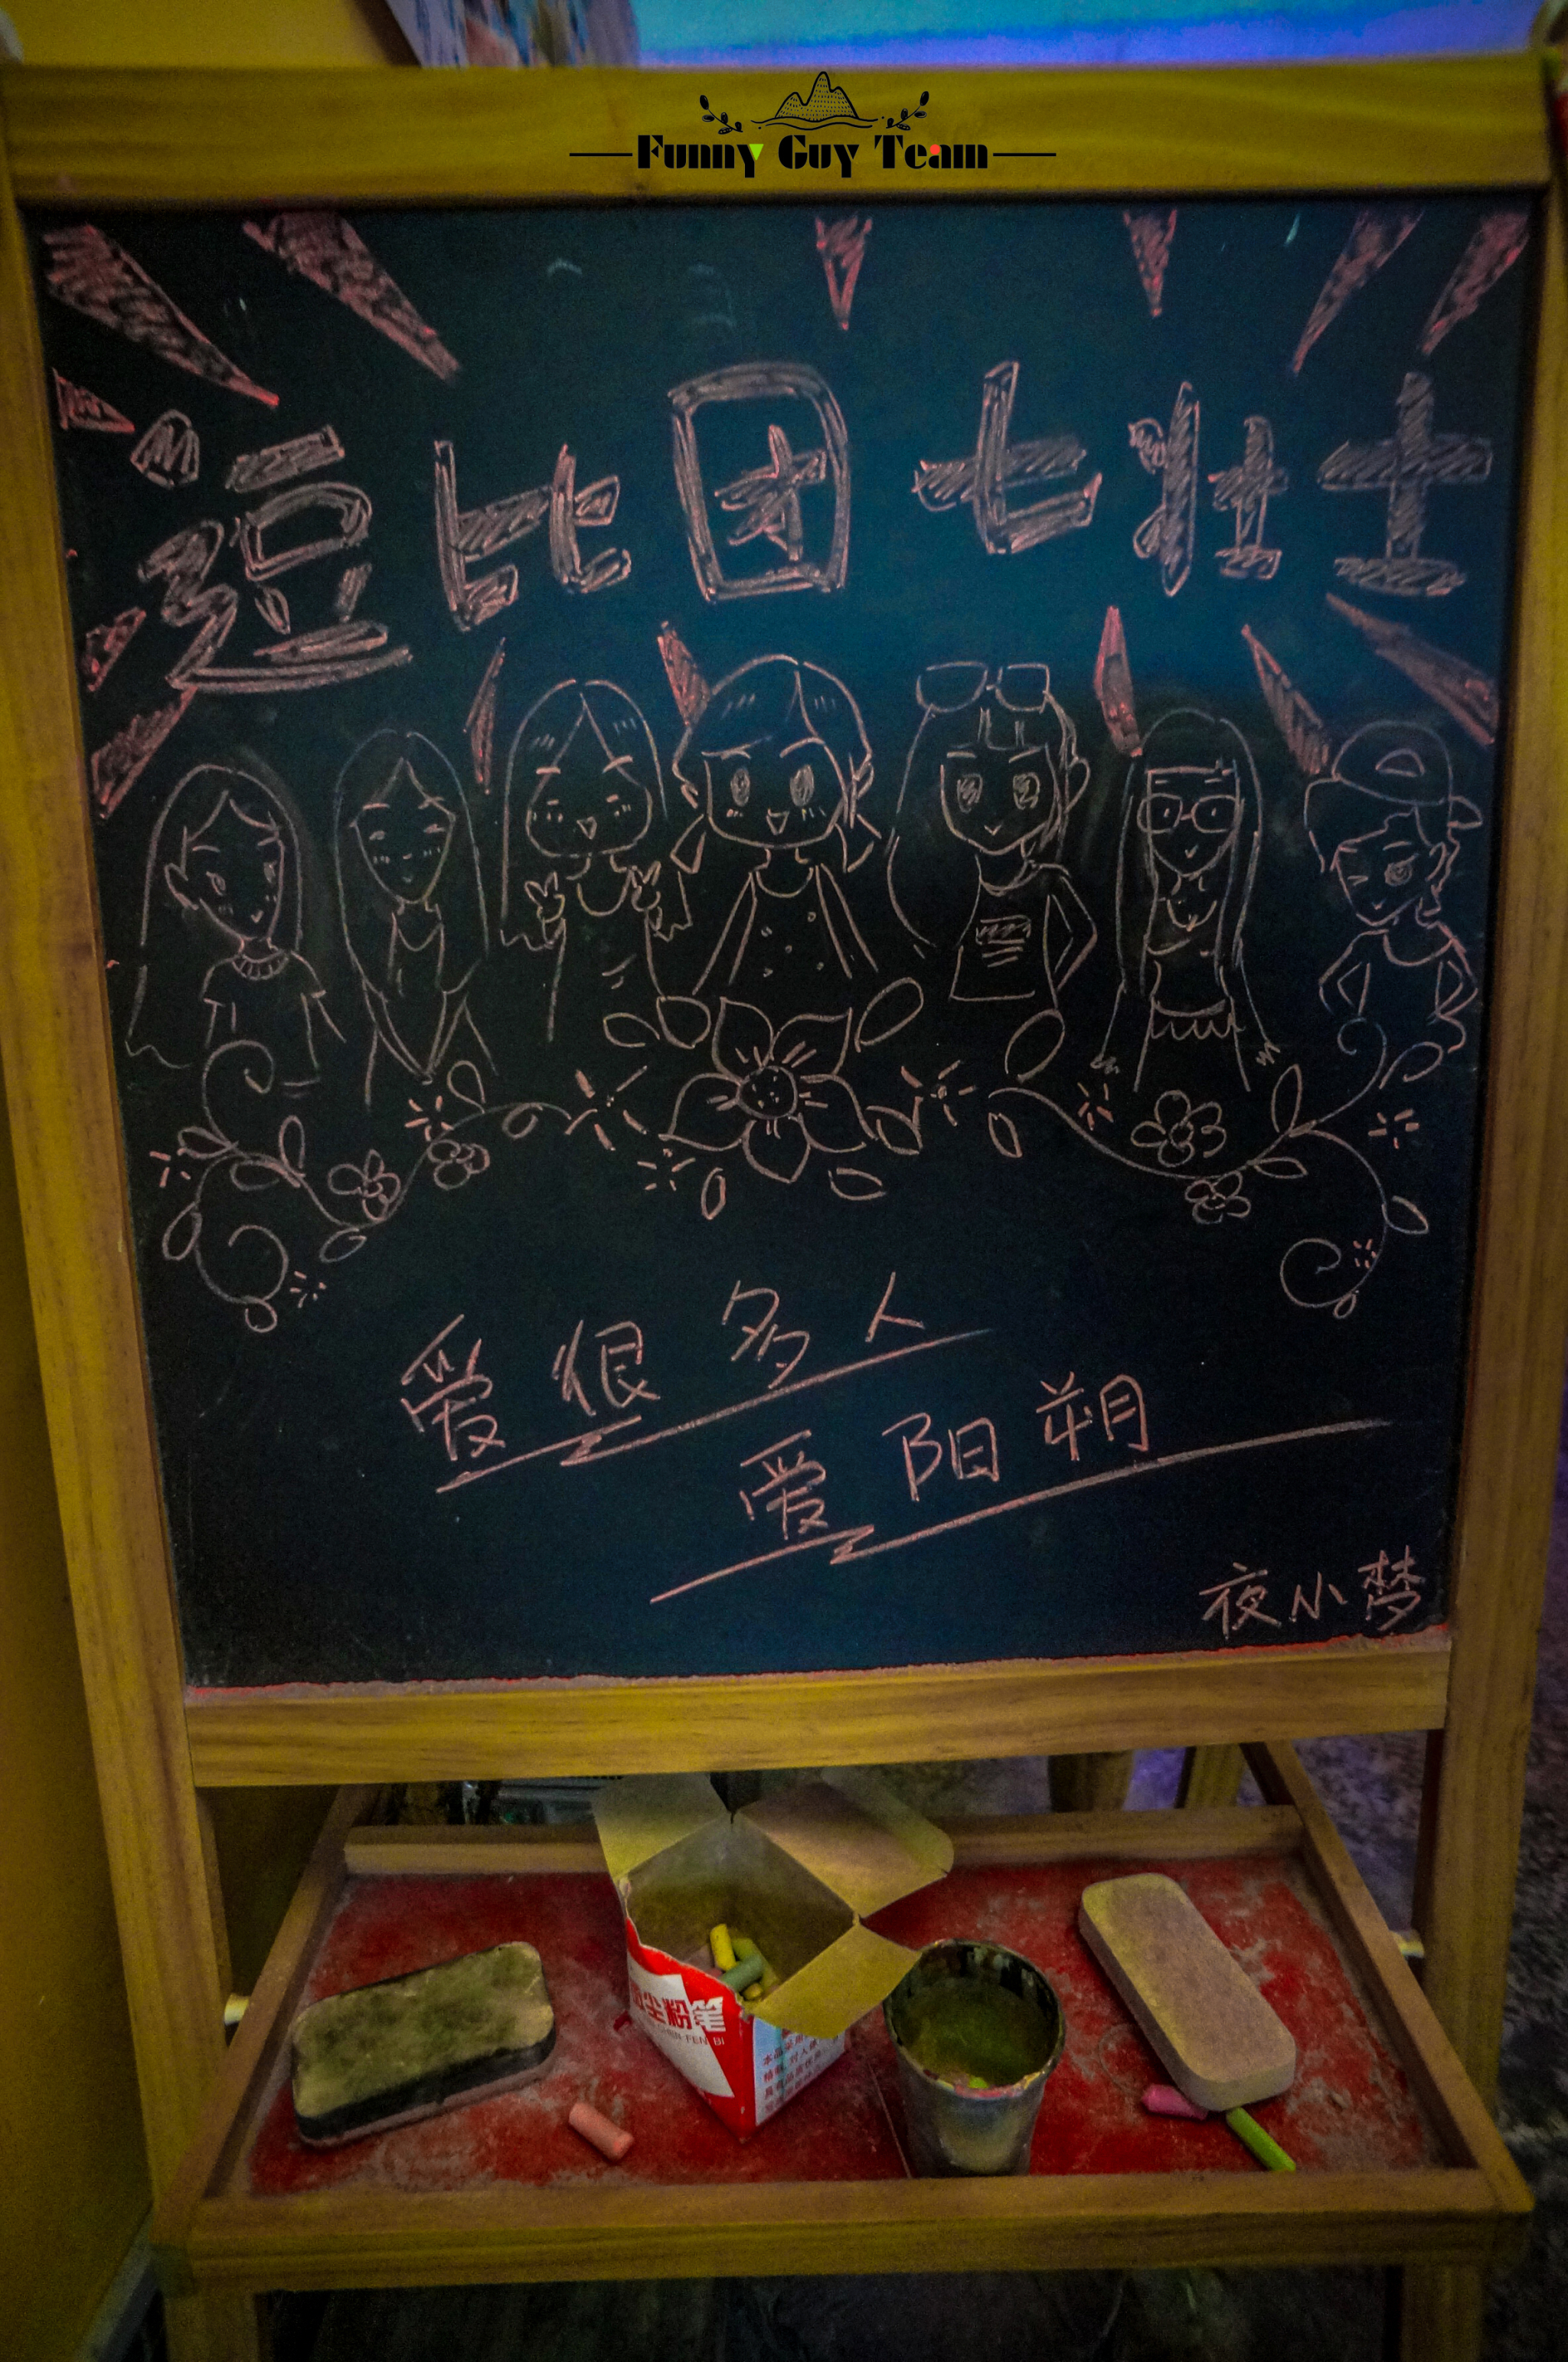 Funny Guy Team
逗比团七壮士
爱很多人
爱阳朔
夜小梦
尘粉笔
CHEN FEN BI